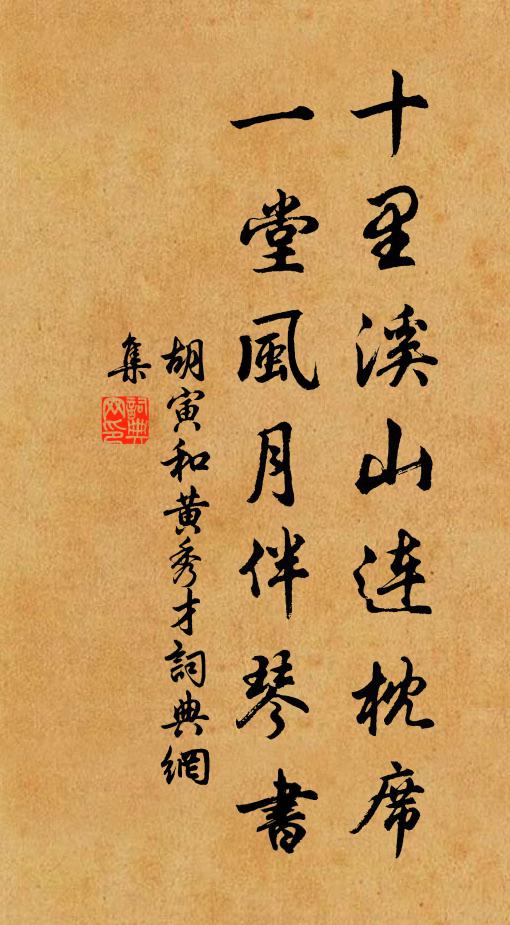 十里溪山連枕席
一堂風月伴琴書
胡寅和黄秀才詞典網
集
詞典網印